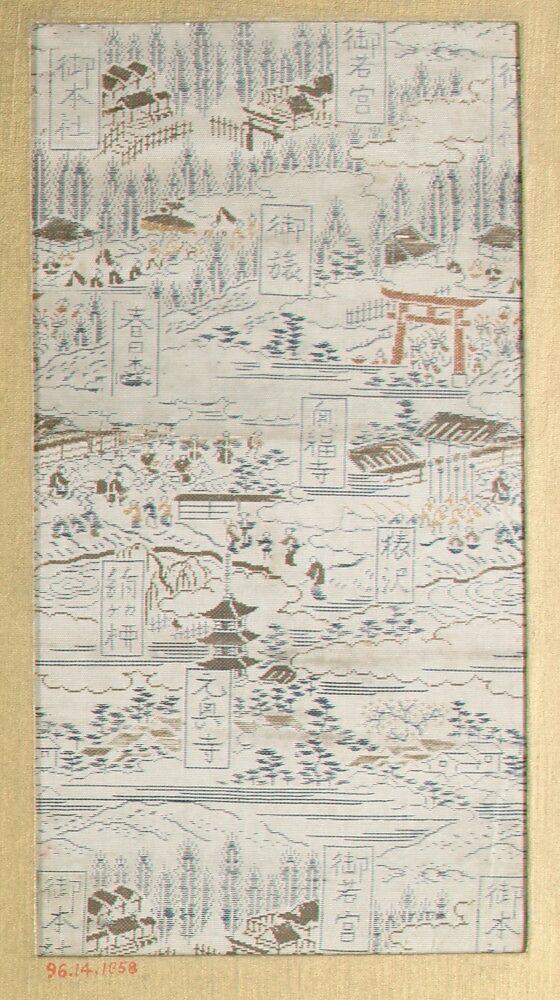 御本社
御若宮
御本社
御旅
春日
興福寺
猿沢
元興寺
御若宮
御本社
御本
96.14.1058